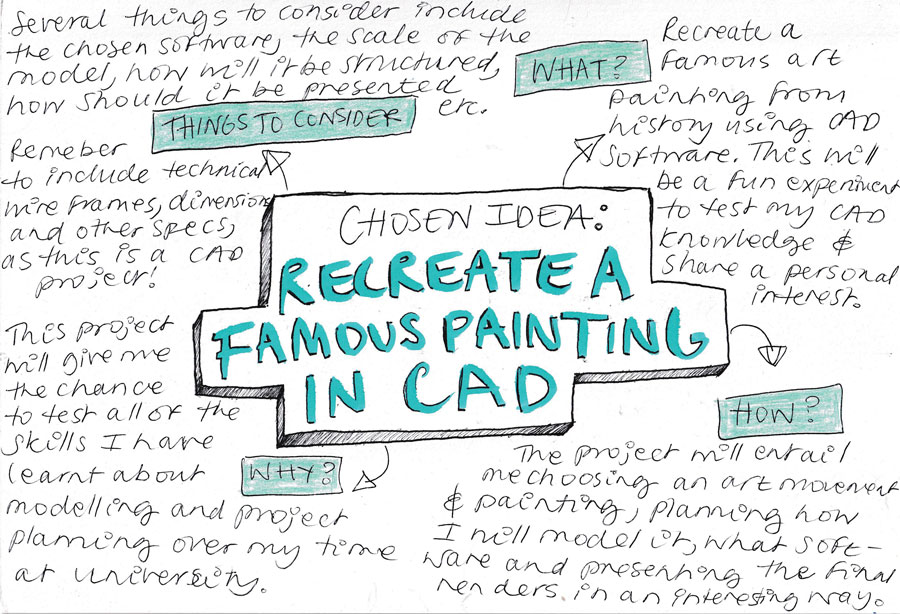 Several things to consider include
the chosen software, the scale of the
model, how will it be structured,
how should it be presented
etc.
THINGS TO CONSIDER
Remeber
to include technical
wire frames, dimensions
and other specs,
as this is a CAD
project!
WHAT?
Recreate a
famous art
painting from
history using CAD
software. This will
be a fun experiment
to test my CAD
knowledge &
share a personal
interest.
CHOSEN IDEA:
RECREATE A
FAMOUS PAINTING
IN CAD
This project
will give me
the chance
to test all of the
skills I have
learnt about
modelling and project
planning over my time
at university.
WHY?
HOW?
The project will entail
me choosing an art movement
& painting, planning how
I will model it, what soft-
ware and presenting the final
renders in an interesting way.